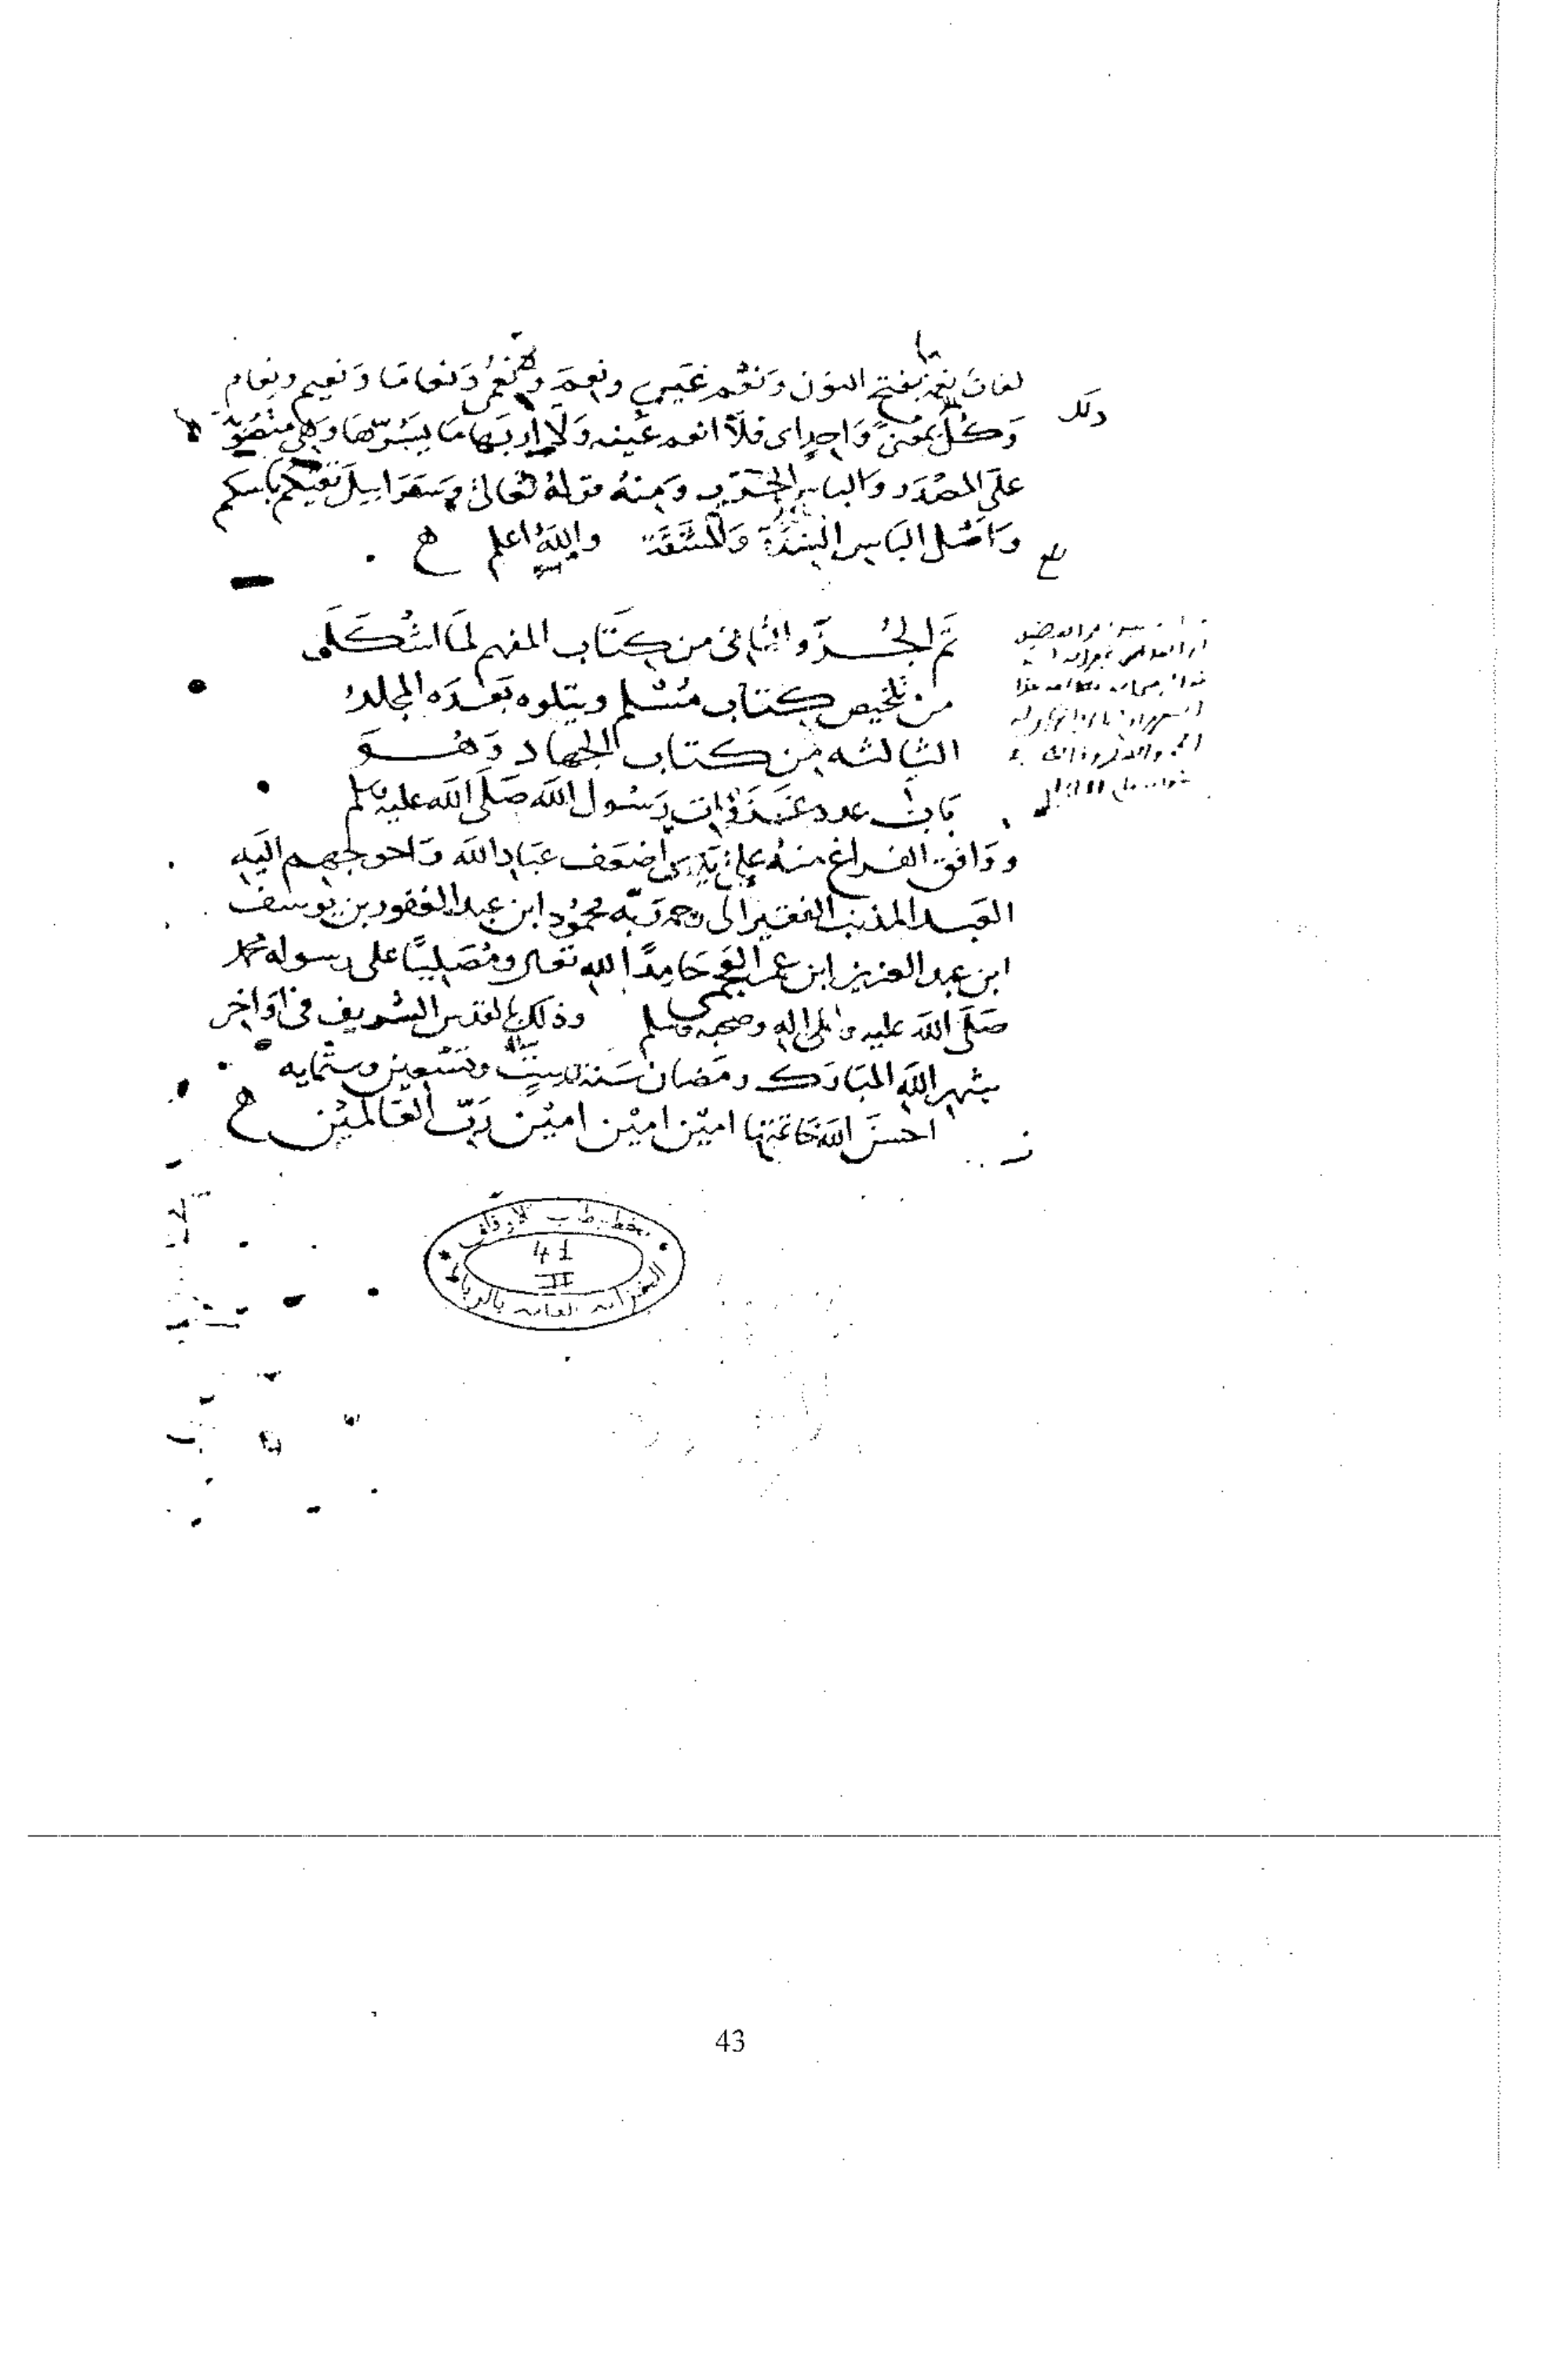 لغات نعمة بفتح النون ونعم عين ونعمة ونعمى ونعاما ونعيم ونعام
ذلك
وكل بمعنى واحد اى فلا انعم عينه ولا اريها ما يسرها وهى منصوبة
على المصدر والباس الحرب ومنه قوله تعالى وسرابيل تقيكم باسكم
واصل الباس الشدة والمشقة والله اعلم
تم الجزو الثانى من كتاب المفهم لما اشكل
من تلخيص كتاب مسلم ويتلوه بعده المجلد
الثالثه من كتاب الجهاد وهو
باب عدد غزوات رسول الله صلى الله عليه وسلم
ووافق الفراغ منه على يدى اضعف عباد الله واحوجهم اليه
العبد المذنب الفقير الى رحمة ربه محمود ابن عبد الغفور بن يوسف
ابن عبد العزيز ابن عمر العجمى حامدا لله تعالى ومصليا على رسوله محمد
صلى الله عليه وعلى اله وصحبه وسلم وذلك بالقدس الشريف فى اواخر
شهر الله المبارك رمضان سنة ست وتسعين وستمايه
احسن الله خاتمتها امين امين امين رب العالمين
مخطوطات الاوقاف
41
II
الخزانة العامة بالرباط
43